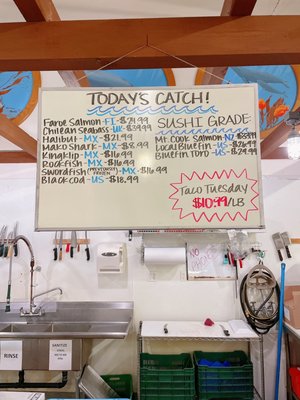 TODAY'S CATCH!
Faroe Salmon-FI-$21.99
Chilean Seabass-UK-$39.99
Halibut-MX-$21.99
Mako Shark-MX-$8.99
Kingklip-MX-$16.99
Rockfish-MX-$16.99
Swordfish (PREVIOUSLY FROZEN)-MX-$16.99
Black cod-US-$18.99
SUSHI GRADE
Mt Cook Salmon-NZ-$33.99
Local Bluefin-US-$26.99
Bluefin Toro-US-$29.99
Taco Tuesday
$10.99/LB
NO
RINSE
SANITIZE